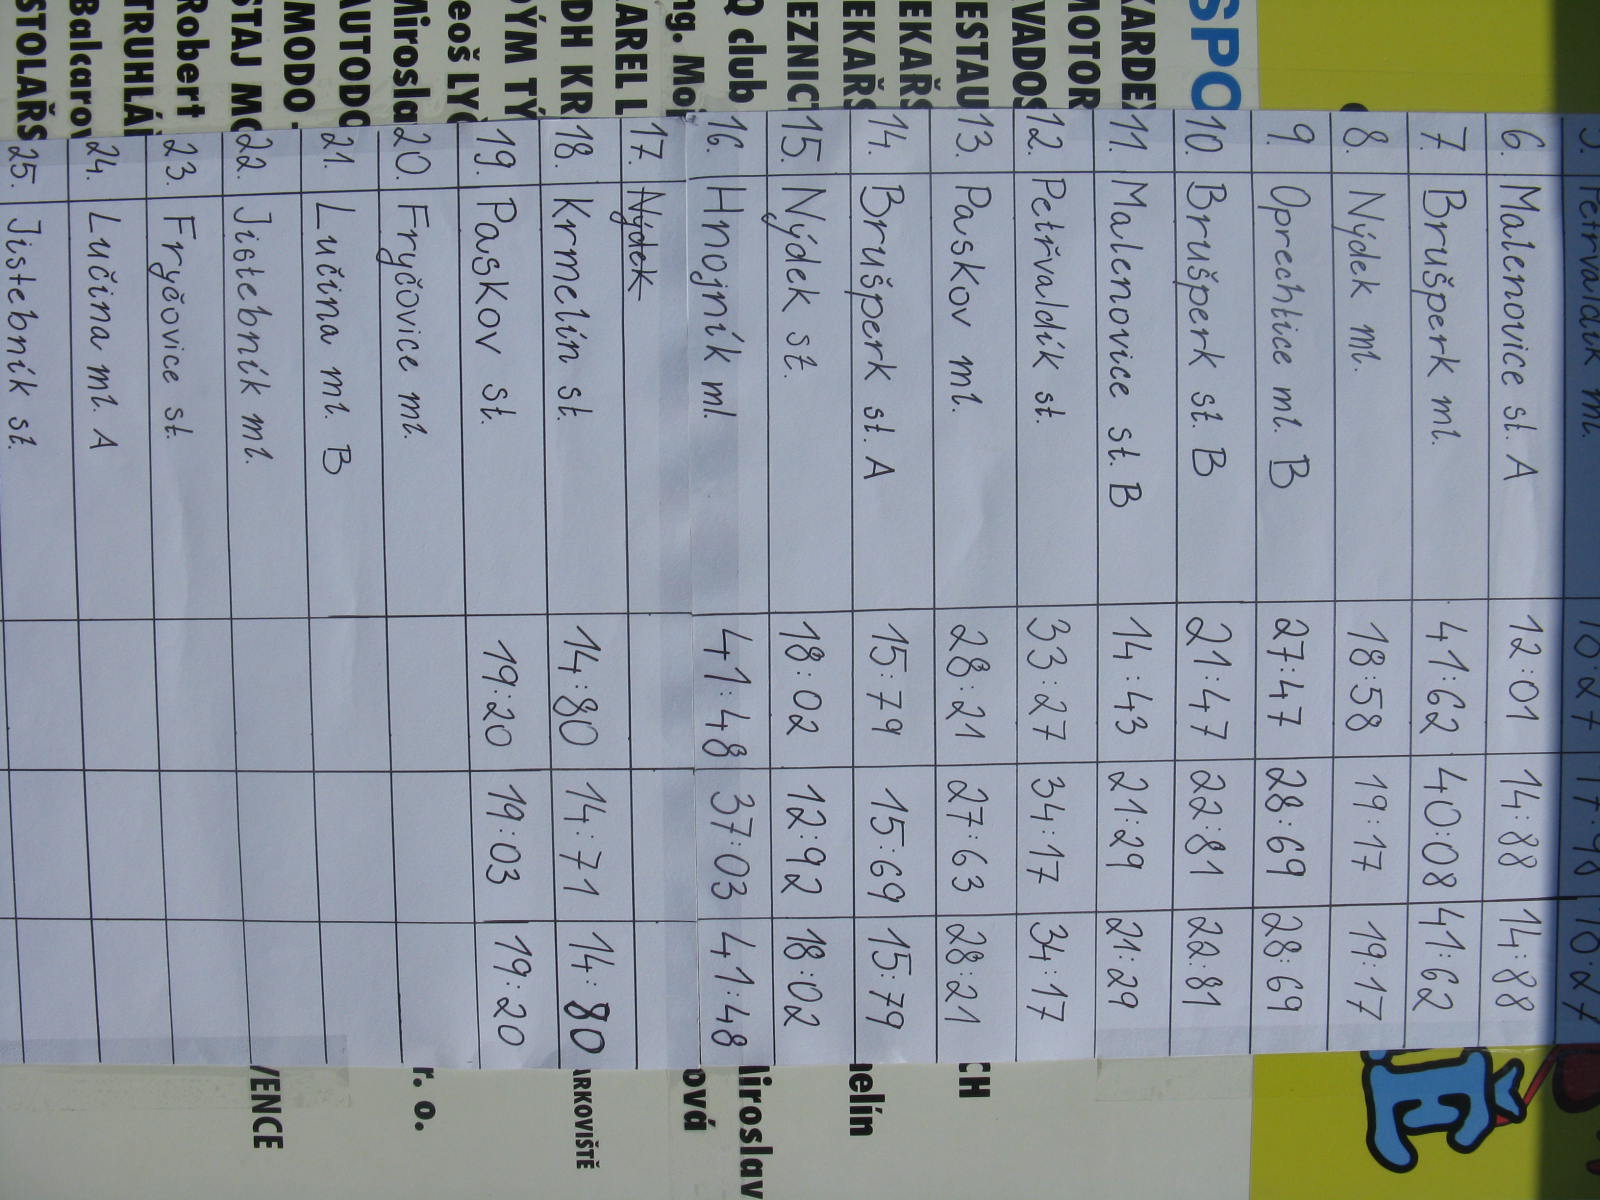 SPO
KARDEX
MOTOR
VADOS
ESTAU
EKAŘS
EKAŘS
EZNIC
Q club
ng. Moj
KAREL L
DH KR
DÝM TÝ
eoš LYČ
Mirosla
AUTODO
MODO -
STAJ MO
Robert
TRUHLÁ
Balcarov
STOLAŘS
5. Petřvaldík ml. 16:27 17:98 16:27
6. Malenovice st. A 12:01 14:88 14:88
7. Brušperk ml. 41:62 40:08 41:62
8. Nýdek ml. 18:58 19:17 19:17
9. Oprechtice ml. B 27:47 28:69 28:69
10. Brušperk st. B 21:47 22:81 22:81
11. Malenovice st. B 14:43 21:29 21:29
12. Petřvaldík st. 33:27 34:17 34:17
13. Paskov ml. 28:21 27:63 28:21
14. Brušperk st. A 15:79 15:69 15:79
15. Nýdek st. 18:02 12:92 18:02
16. Hnojník ml. 41:48 37:03 41:48
17. Nýdek
18. Krmelín st. 14:80 14:71 14:80
19. Paskov st. 19:20 19:03 19:20
20. Fryčovice ml.
21. Lučina ml. B
22. Jistebník ml.
23. Fryčovice st.
24. Lučina ml. A
25. Jistebník st.
CH
nelín
Miroslav
ová
ARKOVIŠTĚ
r. o.
VENCE